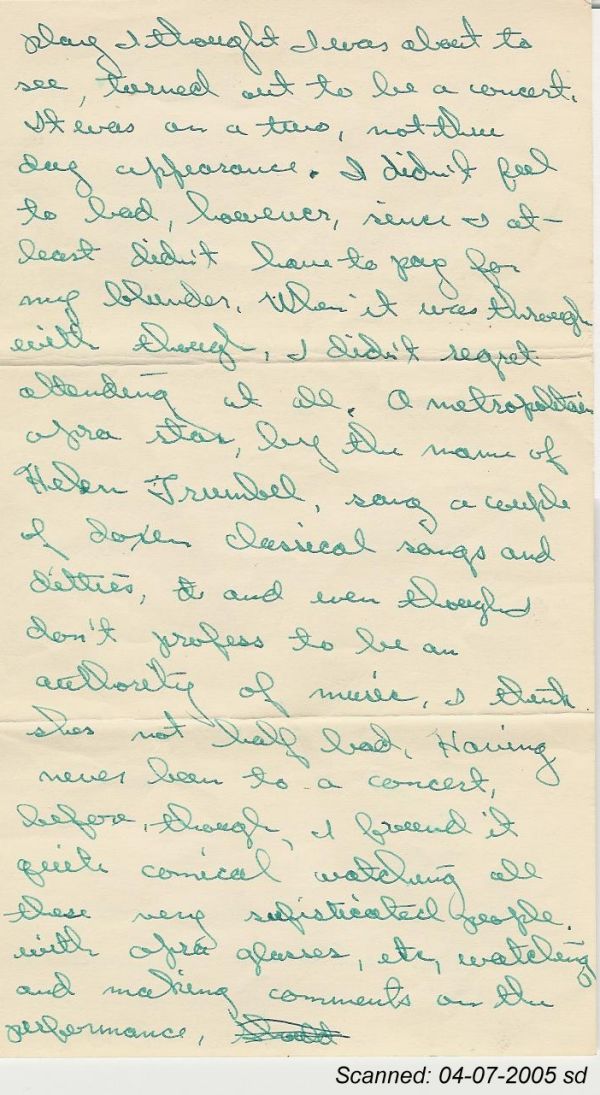 play I thought I was about to
see, turned out to be a concert.
It was on a two, not three
day appearance. I didn't feel
to bad, however, since I at-
least didn't have to pay for
my blunder. When it was through
with though, I didn't regret
attending at all. A metropolitain
opra star, by the name of
Helen Trumbel, sang a couple
of dozen classical songs and
ditties, and even though I
don't profess to be an
authority of music, I think
shes not half bad. Having
never been to a concert,
before, though, I found it
quite comical watching all
these very sufisticated people.
with opra glasses, etc, watching
and making comments on the
performance,
Scanned: 04-07-2005 sd